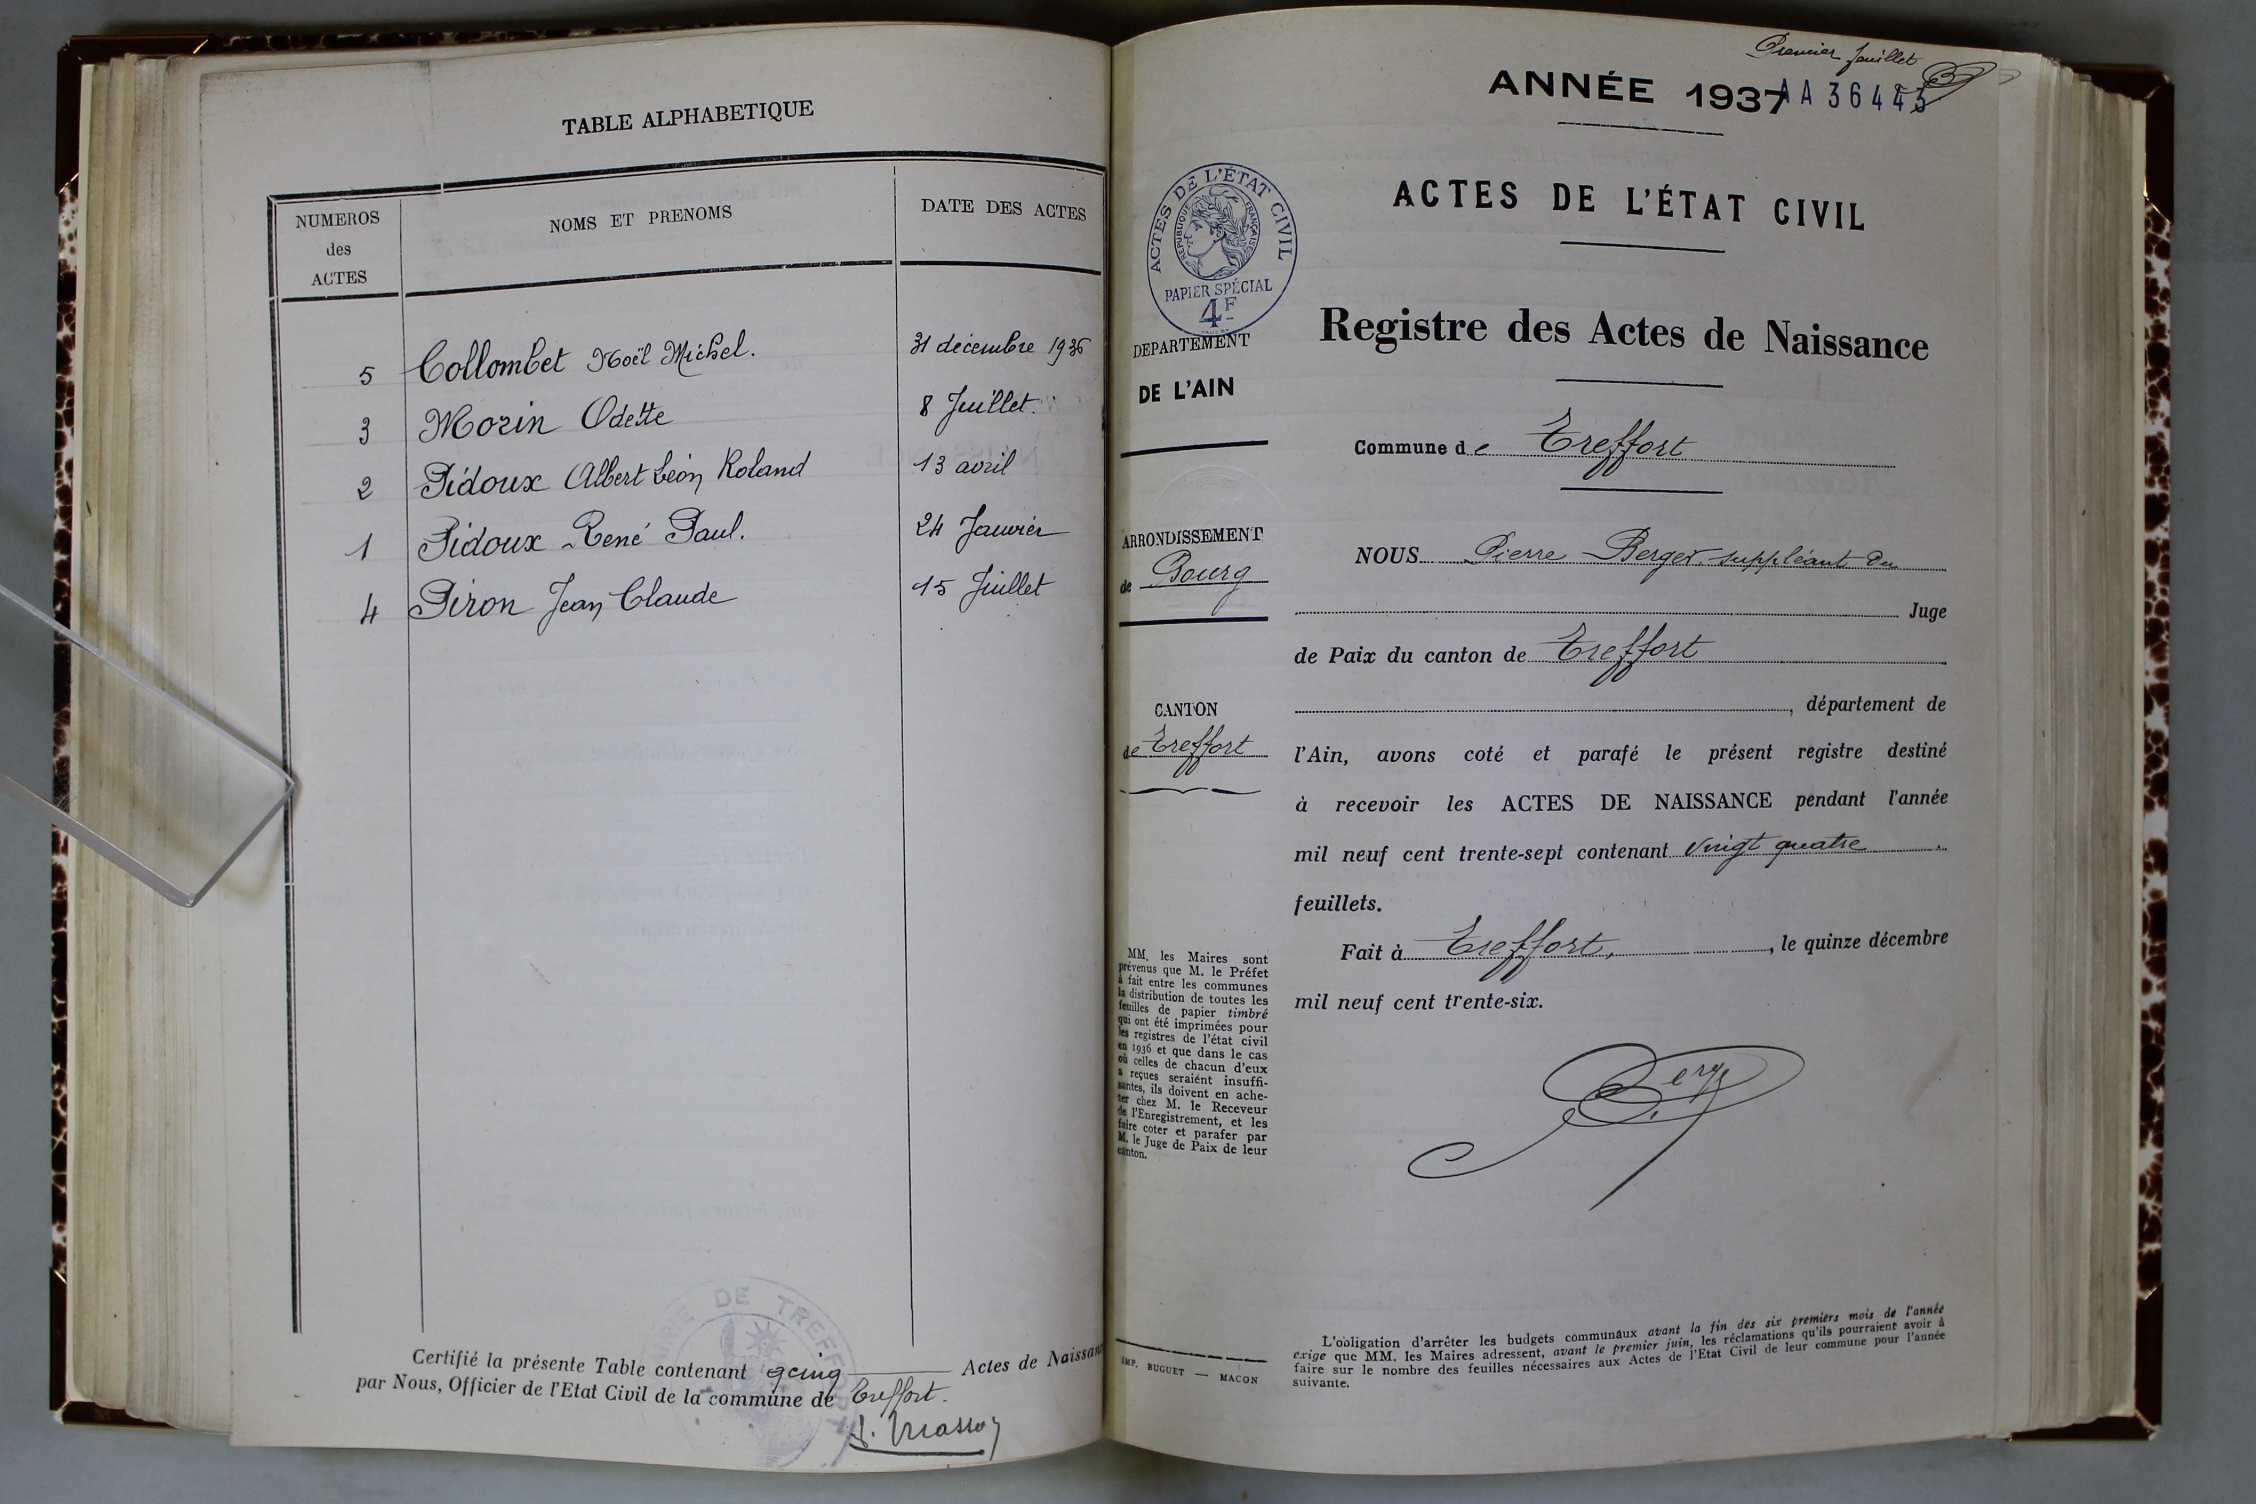 TABLE ALPHABETIQUE
NUMEROS
des
ACTES
NOMS ET PRENOMS
DATE DES ACTES
5 Collombet Noël Michel. 31 décembre 1936
3 Morin Odette 8 Juillet.
2 Pidoux Albert Léon Roland 13 avril
1 Pidoux René Paul. 24 Janvier
4 Piron Jean Claude 15 Juillet
Certifié la présente Table contenant cinq Actes de Naissanc
par Nous, Officier de l'Etat Civil de la commune de Treffort.
MAIRIE DE TREFFORT
Premier feuillet
ANNÉE 1937
AA 36443
ACTES DE L'ÉTAT CIVIL
ACTES DE L'ÉTAT CIVIL
RÉPUBLIQUE FRANÇAISE
PAPIER SPÉCIAL
4F
Registre des Actes de Naissance
DEPARTEMENT
DE L'AIN
Commune de Treffort
ARRONDISSEMENT
de Bourg
CANTON
de Treffort
NOUS Pierre Berger, suppléant du
Juge
de Paix du canton de Treffort
, département de
l'Ain, avons coté et parafé le présent registre destiné
à recevoir les ACTES DE NAISSANCE pendant l'année
mil neuf cent trente-sept contenant vingt quatre
feuillets.
Fait à Treffort, , le quinze décembre
mil neuf cent trente-six.
MM. les Maires sont
prévenus que M. le Préfet
a fait entre les communes
la distribution de toutes les
feuilles de papier timbré
qui ont été imprimées pour
les registres de l'état civil
en 1936 et que dans le cas
où celles de chacun d'eux
a reçues seraient insuffi-
santes, ils doivent en ache-
ter chez M. le Receveur
de l'Enregistrement, et les
faire coter et parafer par
M. le Juge de Paix de leur
canton.
IMP. BUGUET — MACON
L'obligation d'arrêter les budgets communaux avant la fin des six premiers mois de l'année
exige que MM. les Maires adressent, avant le premier juin, les réclamations qu'ils pourraient avoir à
faire sur le nombre des feuilles nécessaires aux Actes de l'Etat Civil de leur commune pour l'année
suivante.